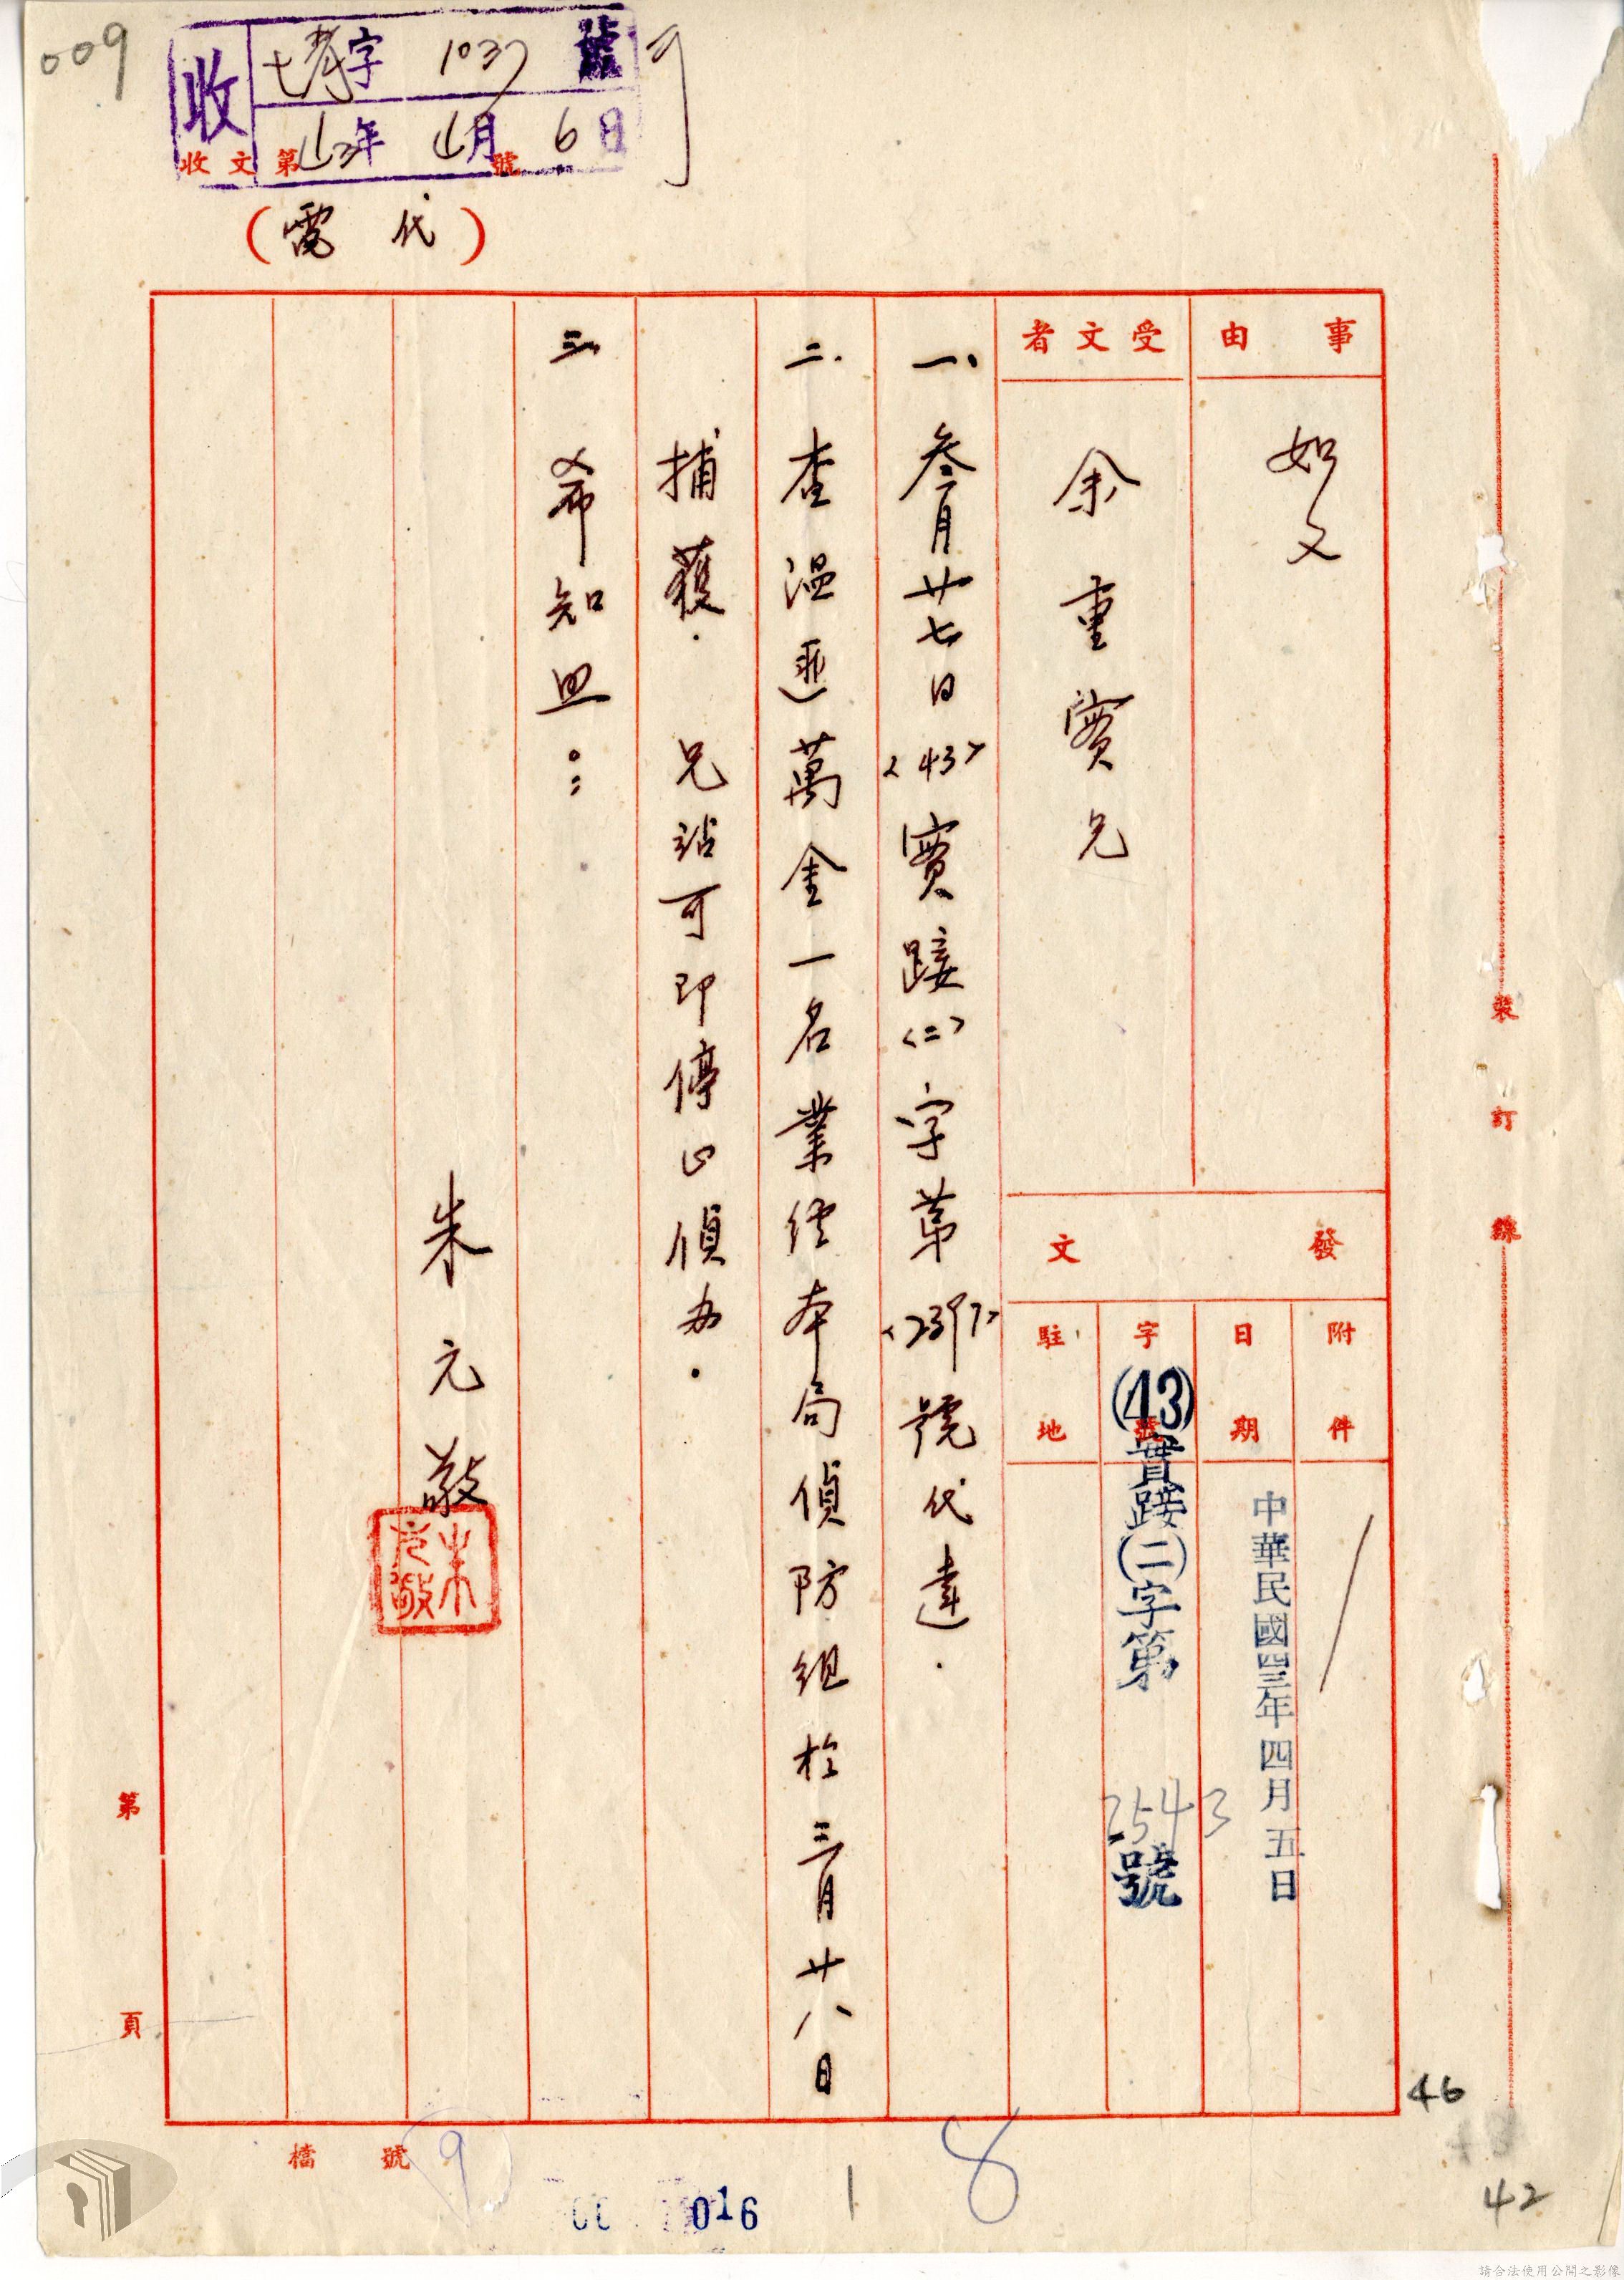 009
收
字 1037 號
43年 4月 6日
收文第 號
(代電)
事由
如文
受文者
余重實兄
發文
附件
日期
中華民國四三年四月五日
字號
(43)實踐(二)字第2543號
駐地
一、叁月廿七日<43>實踐<二>字第 號代達.
二.查温匪萬金一名業經本局偵防組於三月廿八日
捕獲.兄站可即停止偵办.
三 希知照
朱元敬
朱元敬
裝訂線
第 頁
檔號
9
016
8
46
42
請合法使用公開之影像